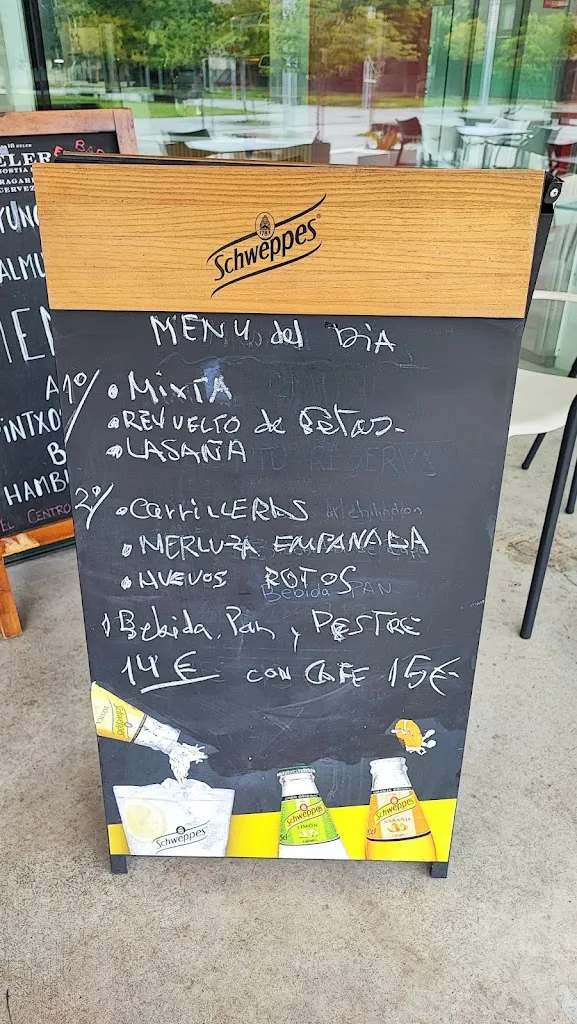 Schweppes
MENU del DIA
A1º/ • MIXTA
• REVUELTO de Setas.
• LASAÑA
2º/ • CARRILLERAS
• MERLUZA EMPANADA
• HUEVOS ROTOS
Bebida PAN
1 Bebida, Pan y POSTRE
14 € CON CAFE 15€
Schweppes
Schweppes
Schweppes
LIMÓN
Schweppes
NARANJA
HAMB
EL CENTRO